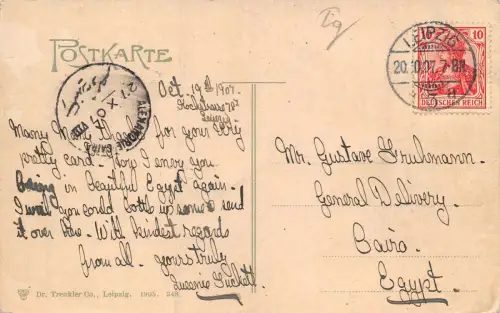 Eg
POSTKARTE
LEIPZIG
20.10.07. 7-8
10
DEUTSCHES REICH
ALEXANDRIE CAIRO
Oct. 19th 1907.
Leipzig
Many Many thanks for your very
pretty card. How I envy you
being in beautiful Egypt again.
I wish you could bottle up some & send
it over here. With kindest regards
from all. Yours truly
Mr. Gustave
General Delivery.
Cairo.
Egypt.
Dr. Trenkler Co., Leipzig. 1905. 348.